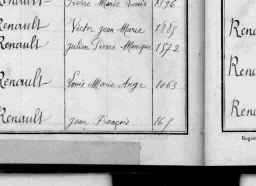 Renault Pierre Marie Louis 1896
Renault Victor Jean Marie 1885
Renault Julien Pierre Monique 1572
Renault Louis Marie Ange 1063
Renault Jean François 16
Rena
Rena
Rena